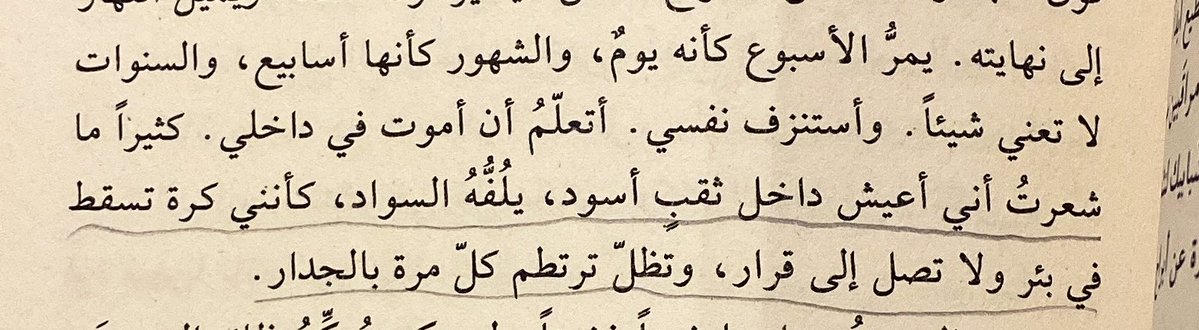 إلى نهايته. يمرُّ الأسبوع كأنه يومٌ، والشهور كأنها أسابيع، والسنوات
لا تعني شيئاً. وأستنزف نفسي. أتعلّمُ أن أموت في داخلي. كثيراً ما
شعرتُ أني أعيش داخل ثقبٍ أسود، يلُفُّهُ السواد، كأنني كرة تسقط
في بئر ولا تصل إلى قرار، وتظلّ ترتطم كلّ مرة بالجدار.